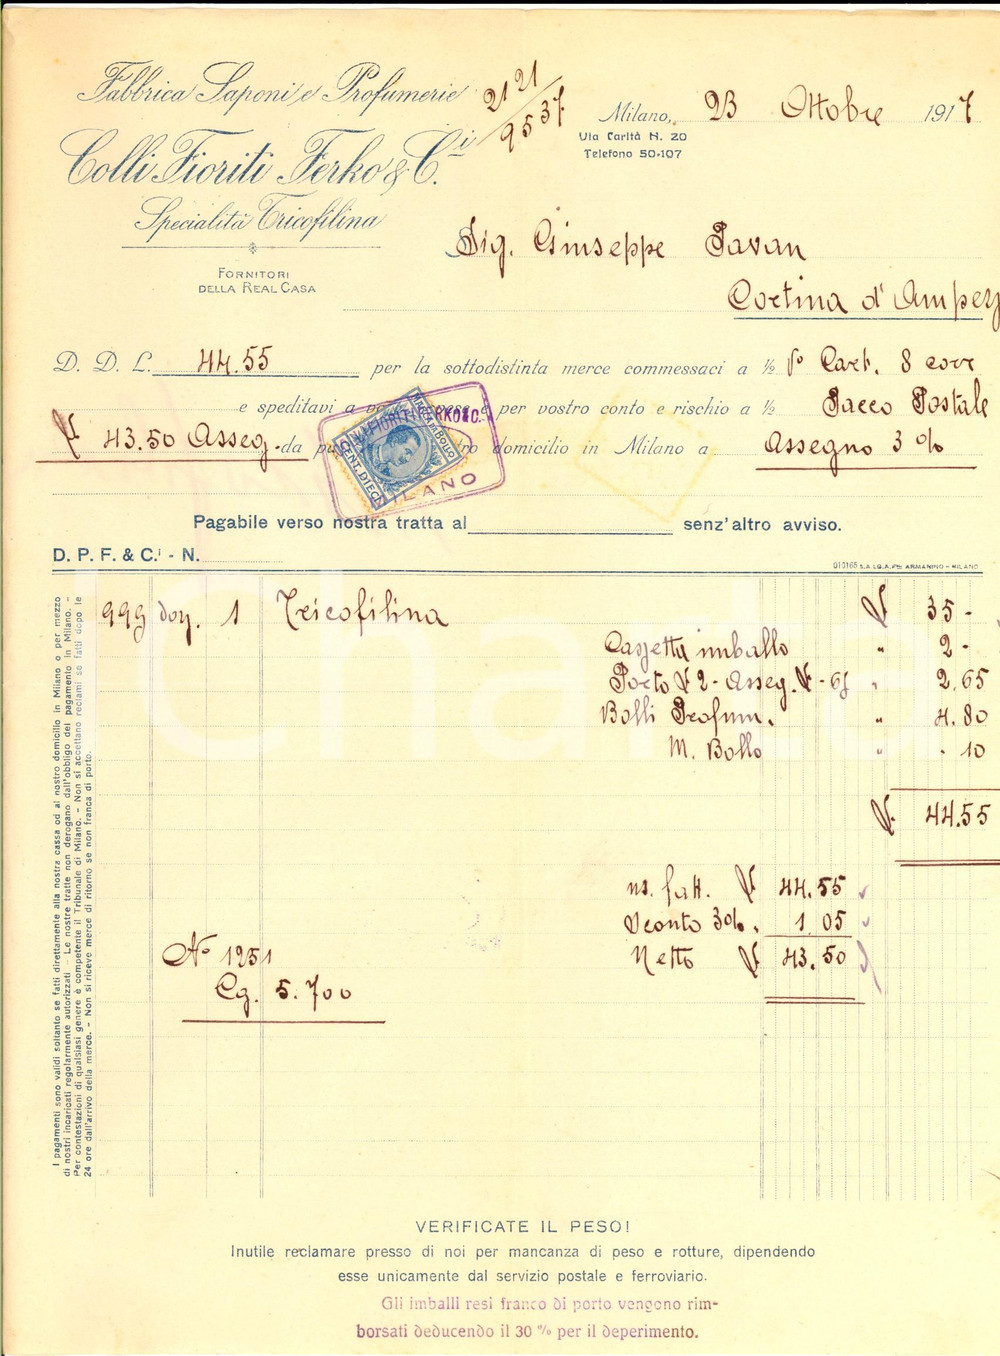 Fabbrica Saponi e Profumerie
2121
9537
Milano, 23 Ottobre 1917
Via Carità N. 20
Telefono 50-107
Colli Fioriti Ferko & C.i
Specialità Tricofilina
FORNITORI
DELLA REAL CASA
Sig. Giuseppe Pavan
Cortina d'Ampez
D. D. L. 44.55 per la sottodistinta merce commessaci a ½ Cart. 8 corr
e speditavi a per vostro conto e rischio a ½ Pacco Postale
43.50 Asseg. da domicilio in Milano a Assegno 3%
MARCA DA BOLLO
CENT. DIECI
MILANO
Pagabile verso nostra tratta al senz'altro avviso.
D. P. F. & C.i - N.
010165 S.A.LG.A.PE: ARMANINO - MILANO
999 doz. 1 Tricofilina £ 35 -
Cassetta imballo " 2 -
Porto £ 2 - Asseg. £ - 65 " 2.65
Bolli Profum. " 4.80
M. Bollo " . 10
£ 44.55
ns. fatt. £ 44.55
Sconto 3%. 1.05
Netto £ 43.50
No 1251
Cg. 5.700
I pagamenti sono validi soltanto se fatti direttamente alla nostra cassa od al nostro domicilio in Milano o per mezzo
di nostri incaricati regolarmente autorizzati - Le nostre tratte non derogano dall'obbligo del pagamento in Milano. -
Per contestazioni di qualsiasi genere è competente il Tribunale di Milano. - Non si accettano reclami se fatti dopo le
24 ore dall'arrivo della merce. - Non si riceve merce di ritorno se non franca di porto.
VERIFICATE IL PESO!
Inutile reclamare presso di noi per mancanza di peso e rotture, dipendendo
esse unicamente dal servizio postale e ferroviario.
Gli imballi resi franco di porto vengono rim-
borsati deducendo il 30 % per il deperimento.